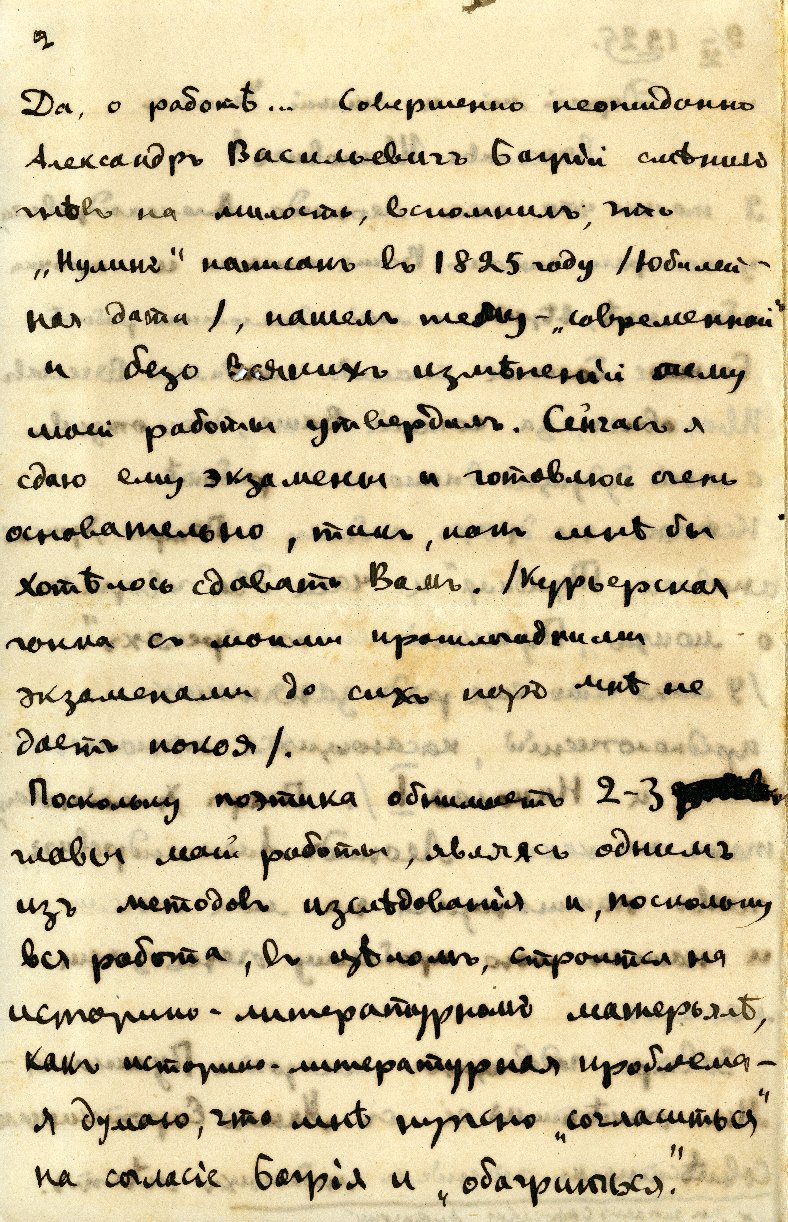 2
Да, о работѣ... Совершенно неожиданно
Александръ Васильевичъ Багрій смѣнилъ
гнѣвъ на милость, вспомнилъ, что
„Нулинъ“ написанъ въ 1825 году /юбилей-
ная дата/, нашелъ тему - „современной“
и безо всякихъ измѣненій тему
моей работы утвердилъ. Сейчасъ я
сдаю ему экзамены и готовлюсь очень
основательно, такъ, какъ мнѣ бы
хотѣлось сдавать Вамъ. /Курьерская
гонка съ моими прошлогодними
экзаменами до сихъ поръ мнѣ не
даетъ покоя/.
Поскольку поэтика обнимаетъ 2-3
главы моей работы, являясь однимъ
изъ методовъ изслѣдованія и, поскольку
вся работа, въ цѣломъ, строится на
историко-литературномъ матерьялѣ,
какъ историко-литературная проблема -
я думаю, что мнѣ нужно „согласиться“
на согласіе Багрія и „обагриться“.